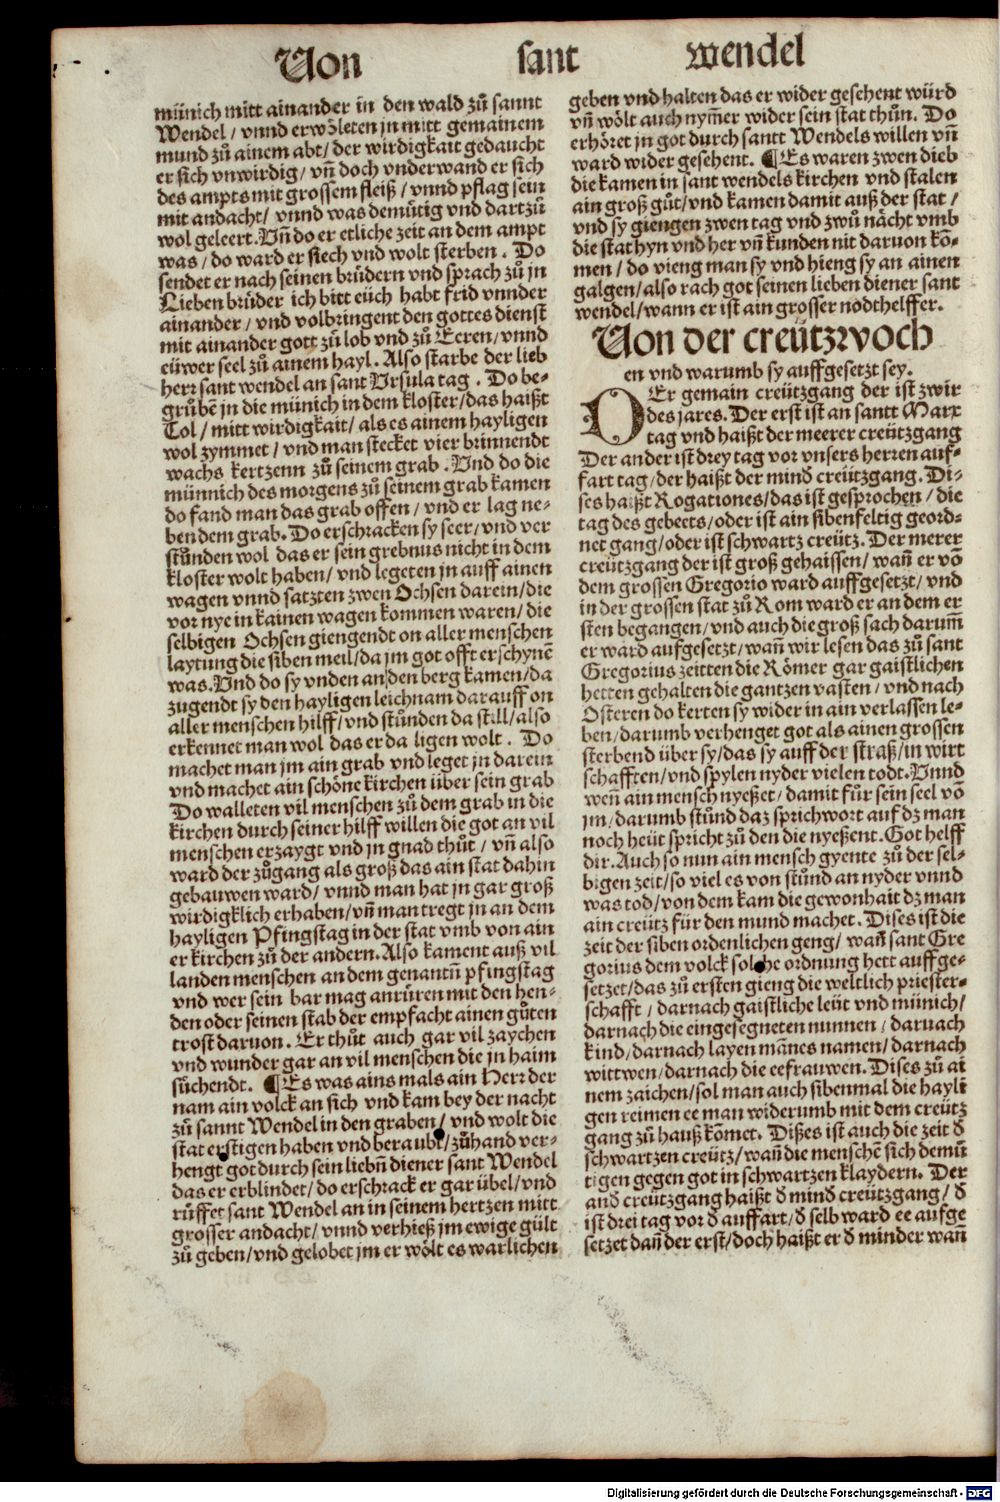 Von sant wendel
münich mitt ainander in den wald zů sannt
Wendel / vnnd erwöleten jn mitt gemainem
mund zů ainem abt / der wirdigkait gedaucht
er sich vnwirdig / vñ doch vnderwand er sich
des ampts mit grossem fleiß / vnnd pflag sein
mit andacht / vnnd was demůtig vnd dartzů
wol geleert. Vñ do er etliche zeit an dem ampt
was / do ward er siech vnd wolt sterben . Do
sendet er nach seinen brüdern vnd sprach zů jn
Lieben brüder ich bitt eüch habt frid vnnder
ainander / vnd volbringent den gottes dienst
mit ainander gott zů lob vnd zů Eeren / vnnd
eüwer seel zů ainem hayl . Also starbe der lieb
herr sant wendel an sant Vrsula tag . Do be-
grůbẽ jn die münich in dem kloster / das haißt
Tol / mitt wirdigkait / als es ainem hayligen
wol zymmet / vnd man stecket vier brinnendt
wachs kertzenn zů seinem grab . Vnd do die
münnich des morgens zů seinem grab kamen
do fand man das grab offen / vnd er lag ne-
ben dem grab . Do erschracken sy seer / vnd ver
stůnden wol das er sein grebnus nicht in dem
kloster wolt haben / vnd legeten jn auff ainen
wagen vnnd satzten zwen Ochsen darein / die
vor nye in kainen wagen kommen waren / die
selbigen Ochsen giengendt on aller menschen
laytung die siben meil / da jm got offt erschynẽ
was . Vnd do sy vnden an den berg kamen / da
zugendt sy den hayligen leichnam darauff on
aller menschen hilff / vnd stůnden da still / also
erkennet man wol das er da ligen wolt . Do
machet man jm ain grab vnd leget jn darein
vnd machet ain schöne kirchen über sein grab
Do walleten vil menschen zů dem grab in die
kirchen durch seiner hilff willen die got an vil
menschen erzaygt vnd jn gnad thůt / vñ also
ward der zůgang als groß das ain stat dahin
gebauwen ward / vnnd man hat jn gar groß
wirdigklich erhaben / vñ man tregt jn an dem
hayligen Pfingstag in der stat vmb von ain
er kirchen zů der andern . Also kament auß vil
landen menschen an dem genantñ pfingstag
vnd wer sein bar mag anrüren mit den hen-
den oder seinen stab der empfacht ainen gůten
trost daruon . Er thůt auch gar vil zaychen
vnd wunder gar an vil menschen die jn haim
sůchendt . ¶ Es was ains mals ain Herr der
nam ain volck an sich vnd kam bey der nacht
zů sannt Wendel in den graben / vnd wolt die
stat erstigen haben vnd beraubt / zůhand ver-
hengt got durch sein liebñ diener sant Wendel
das er erblindet / do erschrack er gar übel / vnd
rüffet sant Wendel an in seinem hertzen mitt
grosser andacht / vnnd verhieß jm ewige gült
zů geben / vnd gelobet jm er wölt es warlichen
geben vnd halten das er wider gesehent würd
vñ wölt auch nym̃er wider sein stat thůn . Do
erhöret jn got durch santt Wendels willen vñ
ward wider gesehent . ¶ Es waren zwen dieb
die kamen in sant wendels kirchen vnd stalen
ain groß gůt / vnd kamen damit auß der stat /
vnd sy giengen zwen tag vnd zwů nächt vmb
die stat hyn vnd her vñ kunden nit daruon kõ-
men / do vieng man sy vnd hieng sy an ainen
galgen / also rach got seinen lieben diener sant
wendel / wann er ist ain grosser nodthelffer .
Von der creützwoch
en vnd warumb sy auffgesetzt sey .
DEr gemain creützgang der ist zwir
des jares . Der erst ist an santt Marx
tag vnd haißt der meerer creützgang
Der ander ist drey tag vor vnsers herren auf-
fart tag / der haißt der mind creützgang . Di-
ses haißt Rogationes / das ist gesprochen / die
tag des gebeets / oder ist ain sibenfeltig geord-
net gang / oder ist schwartz creütz . Der merer
creützgang der ist groß gehaissen / wañ er võ
dem grossen Gregorio ward auffgesetzt / vnd
in der grossen stat zů Rom ward er an dem er
sten begangen / vnd auch die groß sach darum̃
er ward aufgesetzt / wañ wir lesen das zů sant
Gregorius zeitten die Römer gar gaistlichen
hetten gehalten die gantzen vasten / vnd nach
Osteren do kerten sy wider in ain verlassen le-
ben / darumb verhenget got als ainen grossen
sterbend über sy / das sy auff der straß / in wirt
schafften / vnd spylen nyder vielen todt . Vnnd
weñ ain mensch nyeßet / damit für sein seel võ
jm / darumb stůnd daz sprichwort auf dz man
noch heüt spricht zů den die nyeßent . Got helff
dir . Auch so nun ain mensch gyente zů der sel-
bigen zeit / so viel es von stůnd an nyder vnnd
was tod / von dem kam die gewonhait dz man
ain creütz für den mund machet . Dises ist die
zeit der siben ordenlichen geng / wañ sant Gre
gorius dem volck solche ordnung hett auffge-
setzet / das zů ersten gieng die weltlich priester-
schafft / darnach gaistliche leüt vnd münich /
darnach die eingesegneten nunnen / darnach
kind / darnach layen mãnes namen / darnach
wittwen / darnach die eefrauwen . Dises zů ai
nem zaichen / sol man auch sibenmal die hayli
gen reimen ee man widerumb mit dem creütz
gang zů hauß kõmet . Dißes ist auch die zeit đ
schwartzen creütz / wañ die menschẽ sich demů
tigen gegen got in schwartzen klaydern . Der
and creützgang haißt đ mind creützgang / đ
ist drei tag vor đ auffart / đ selb ward ee aufge
setzet dañ der erst / doch haißt er đ minder wañ
Digitalisierung gefördert durch die Deutsche Forschungsgemeinschaft - DFG